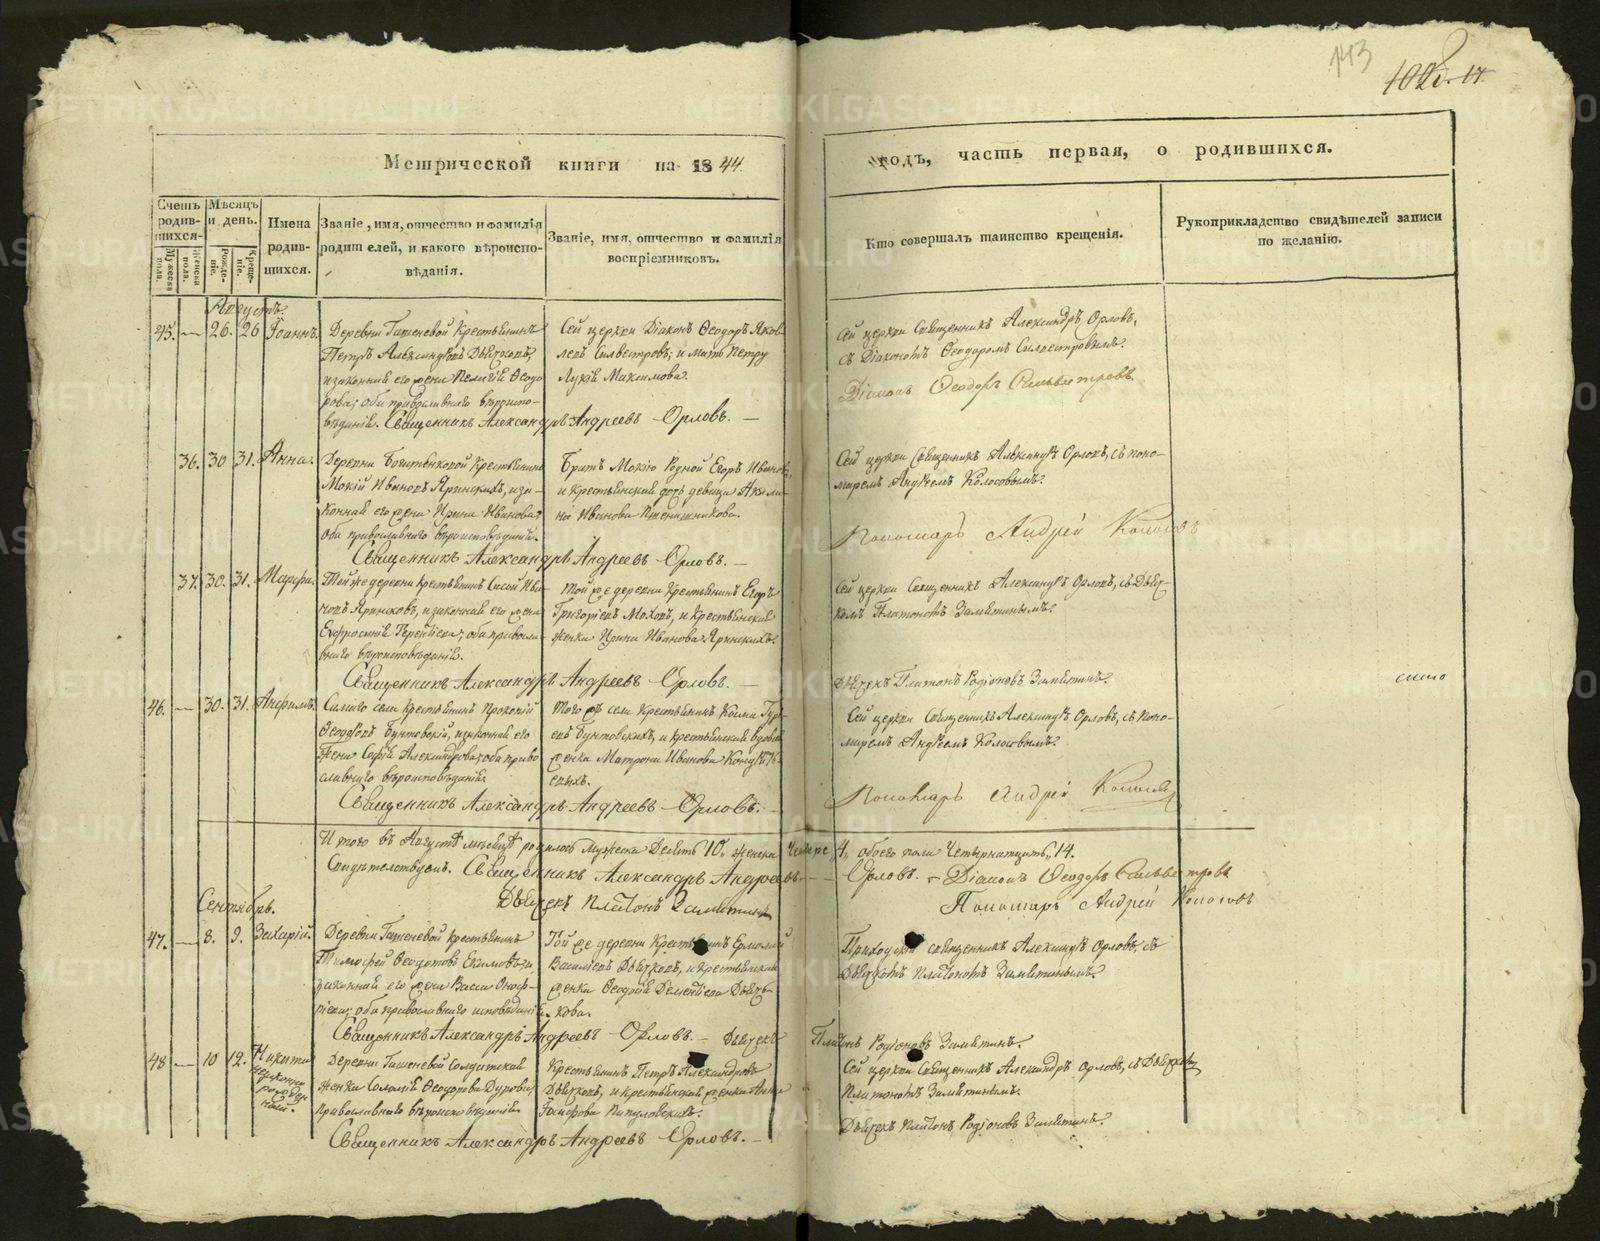 143
Метрической книги на 1844.
годъ, часть первая, о родившихся.
Счетъ родив-шихся.
Мужеска пола.
Женска пола.
Мѣсяцъ и день.
Рожде-ніе.
Креще-ніе.
Имена родив-шихся.
Званіе, имя, отчество и фамилія родителей, и какого вѣроиспо-вѣданія.
Званіе, имя, отчество и фамилія воспріемниковъ.
Кто совершалъ таинство крещенія.
Рукоприкладство свидѣтелей записи по желанію.
Августъ.
45. — 26. 26 Іоаннъ.
Деревни Гашеневой крестьянинъ
Петръ Александровъ Дьячковъ,
и законная его жена Пелагія Ѳеодо-
рова; оба православнаго вѣроиспо-
вѣданія. Священникъ Александръ Андреевъ Орловъ. —
Сей церкви Діаконъ Ѳеодоръ Яков-
левъ Силвестровъ; и мать Петру
Лукія Максимова.
Сей церкви Священникъ Александръ Орловъ,
съ Діакономъ Ѳеодоромъ Силвестровымъ.
Діаконъ Ѳеодоръ Сильвестровъ
36. 30 31. Анна.
Деревни крестьянинъ
Мокій Ивановъ Яринскихъ, и за-
конная его жена Ирина Иванова;
оба православнаго вѣроисповѣданія.
Священникъ Александръ Андреевъ Орловъ. —
Братъ Мокію родной Егоръ Ивановъ,
и крестьянская дочь девица Акили-
на Иванова Пшеничникова.
Сей церкви Священникъ Александръ Орловъ, съ поно-
маремъ Андреемъ Колосовымъ.
Пономарь Андрей Колосовъ
37. 30. 31. Марфа.
Той же деревни крестьянинъ Сисой Ива-
новъ Яринсковъ, и законная его жена
Ефросинія Терентіева; оба правосла-
внаго вѣроисповѣданія.
Священникъ Александръ Андреевъ Орловъ. —
Той же деревни крестьянинъ Егоръ
Григорьевъ Моховъ, и крестьянская
женка Ирина Иванова Яринскихъ.
Сей церкви Священникъ Александръ Орловъ, съ Дьяч-
комъ Платономъ Замятинымъ.
Дьячекъ Платонъ Родіоновъ Замятинъ.
46. — 30. 31. Анфимъ.
Самаго села крестьянинъ Прокопій
Ѳеодоровъ Бунтовскій, и законная его
жена Софія Александрова; оба право-
славнаго вѣроисповѣданія.
Священникъ Александръ Андреевъ Орловъ. —
Того жъ села крестьянинъ Козма Гурь-
евъ Бунтовскихъ, и крестьянская вдовая
женка Матрона Иванова
Сей церкви Священникъ Александръ Орловъ, съ поно-
маремъ Андреемъ Колосовымъ.
Пономарь Андрей Колосовъ
Итого въ Августѣ мѣсяцѣ родилось мужеска Десять 10, женска Четыре, 4, обоего пола Четырнатцать, 14.
Свидѣтелствуемъ. Священникъ Александръ Андреевъ — Орловъ. — Діаконъ Ѳеодоръ Сильвестровъ
Дьячекъ Платонъ Замятинъ
Пономарь Андрей Колосовъ
Сентябрь.
47. — 8. 9. Захарій.
Деревни Гашеневой крестьянинъ
Тимофей Ѳеодотовъ Екимовъ, и
законная его жена Васса Оноф-
ріева; оба православнаго исповѣданія.
Священникъ Александръ Андреевъ Орловъ. — Дьячекъ Платонъ Родіоновъ Замятинъ.
Той же деревни крестьянинъ Ермолай
Васильевъ Дьячковъ, и крестьянская
женка Ѳеодосія Дементіева Дьяч-
кова.
Приходскій священникъ Александръ Орловъ, съ
Дьячкомъ Платономъ Замятинымъ.
48 — 10 12. Никита
незаконно
рожден-
ный.
Деревни Гашеневой Солдатская
женка Соломія Ѳеодорова Дурова,
православнаго вѣроисповѣданія.
Священникъ Александръ Андреевъ Орловъ. —
Крестьянинъ Петръ Александровъ
Дьячковъ, и крестьянская женка Анна
Сей церкви Священникъ Александръ Орловъ, съ Дьячкомъ
Платономъ Замятинымъ.
Дьячекъ Платонъ Родіоновъ Замятинъ.
METRIKI.GASO-URAL.RU